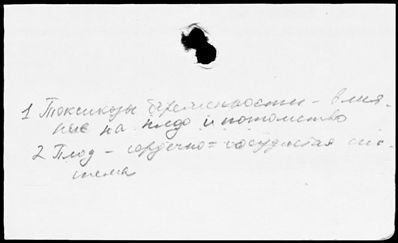 1 Токсикозы беременности – влия-
ние на плод и потомство
2 Плод – сердечно=сосудистая сис-
тема